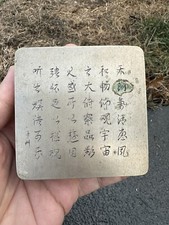 天朗氣清惠風
和暢仰觀宇宙
之大俯察品類
之盛所以遊目
騁懷足以極視
聽之娛信可樂